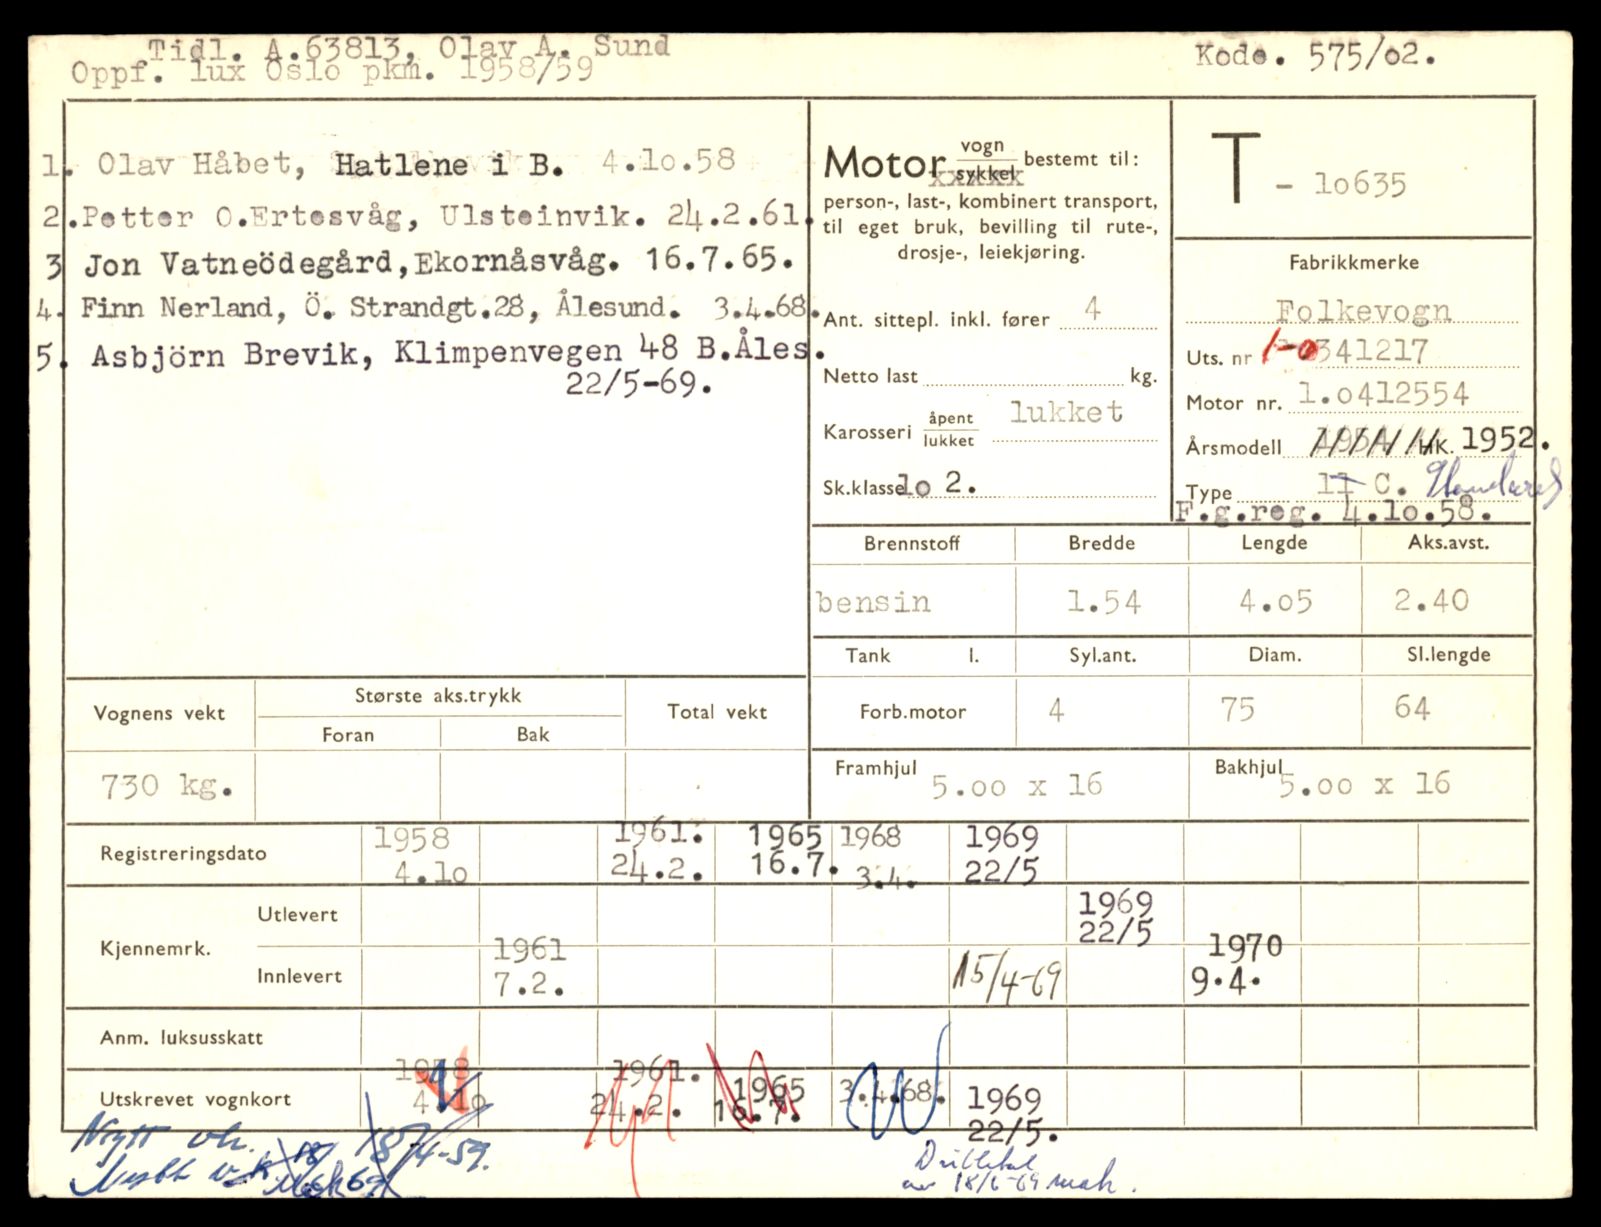 Tidl. A.63813, Olav A. Sund
Oppf. lux Oslo pkm. 1958/59
Kode. 575/o2.
1. Olav Håbet, Hatlene i B. 4.lo.58
2.Petter O.Ertesvåg, Ulsteinvik. 24.2.61.
3 Jon Vatneödegård,Ekornåsvåg. 16.7.65.
4. Finn Nerland, Ö. Strandgt.28, Ålesund. 3.4.68.
5. Asbjörn Brevik, Klimpenvegen 48 B.Åles.
22/5-69.
Motor vogn/sykkel bestemt til:
person-, last-, kombinert transport,
til eget bruk, bevilling til rute-,
drosje-, leiekjøring.
Ant. sittepl. inkl. fører 4
Netto last kg.
Karosseri åpent/lukket lukket
Sk.klasse lo 2.
T - lo635
Fabrikkmerke
Folkevogn
Uts. nr 1-0341217
Motor nr. 1.o412554
Årsmodell 1954 HK. 1952.
Type 11 C.
F.g.reg. 4.lo.58.
Brennstoff Bredde Lengde Aks.avst.
bensin 1.54 4.o5 2.40
Tank l. Syl.ant. Diam. Sl.lengde
Forb.motor 4 75 64
Framhjul 5.oo x 16 Bakhjul 5.oo x 16
Vognens vekt Største aks.trykk Total vekt
Foran Bak
730 kg.
Registreringsdato 1958 1961. 1965 1968 1969
4.lo 24.2. 16.7. 3.4. 22/5
Kjennemrk. Utlevert 1969
22/5
Innlevert 1961 15/4-69 1970
7.2. 9.4.
Anm. luksusskatt
Utskrevet vognkort 1958 1961. 1965 3.4.68. 1969
4.lo 24.2. 16.7. 22/5.
Nytt vk. 18/4-59.
18/6-69 mak.